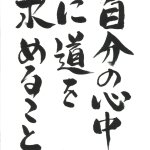 自分の心中
に道を
求めること